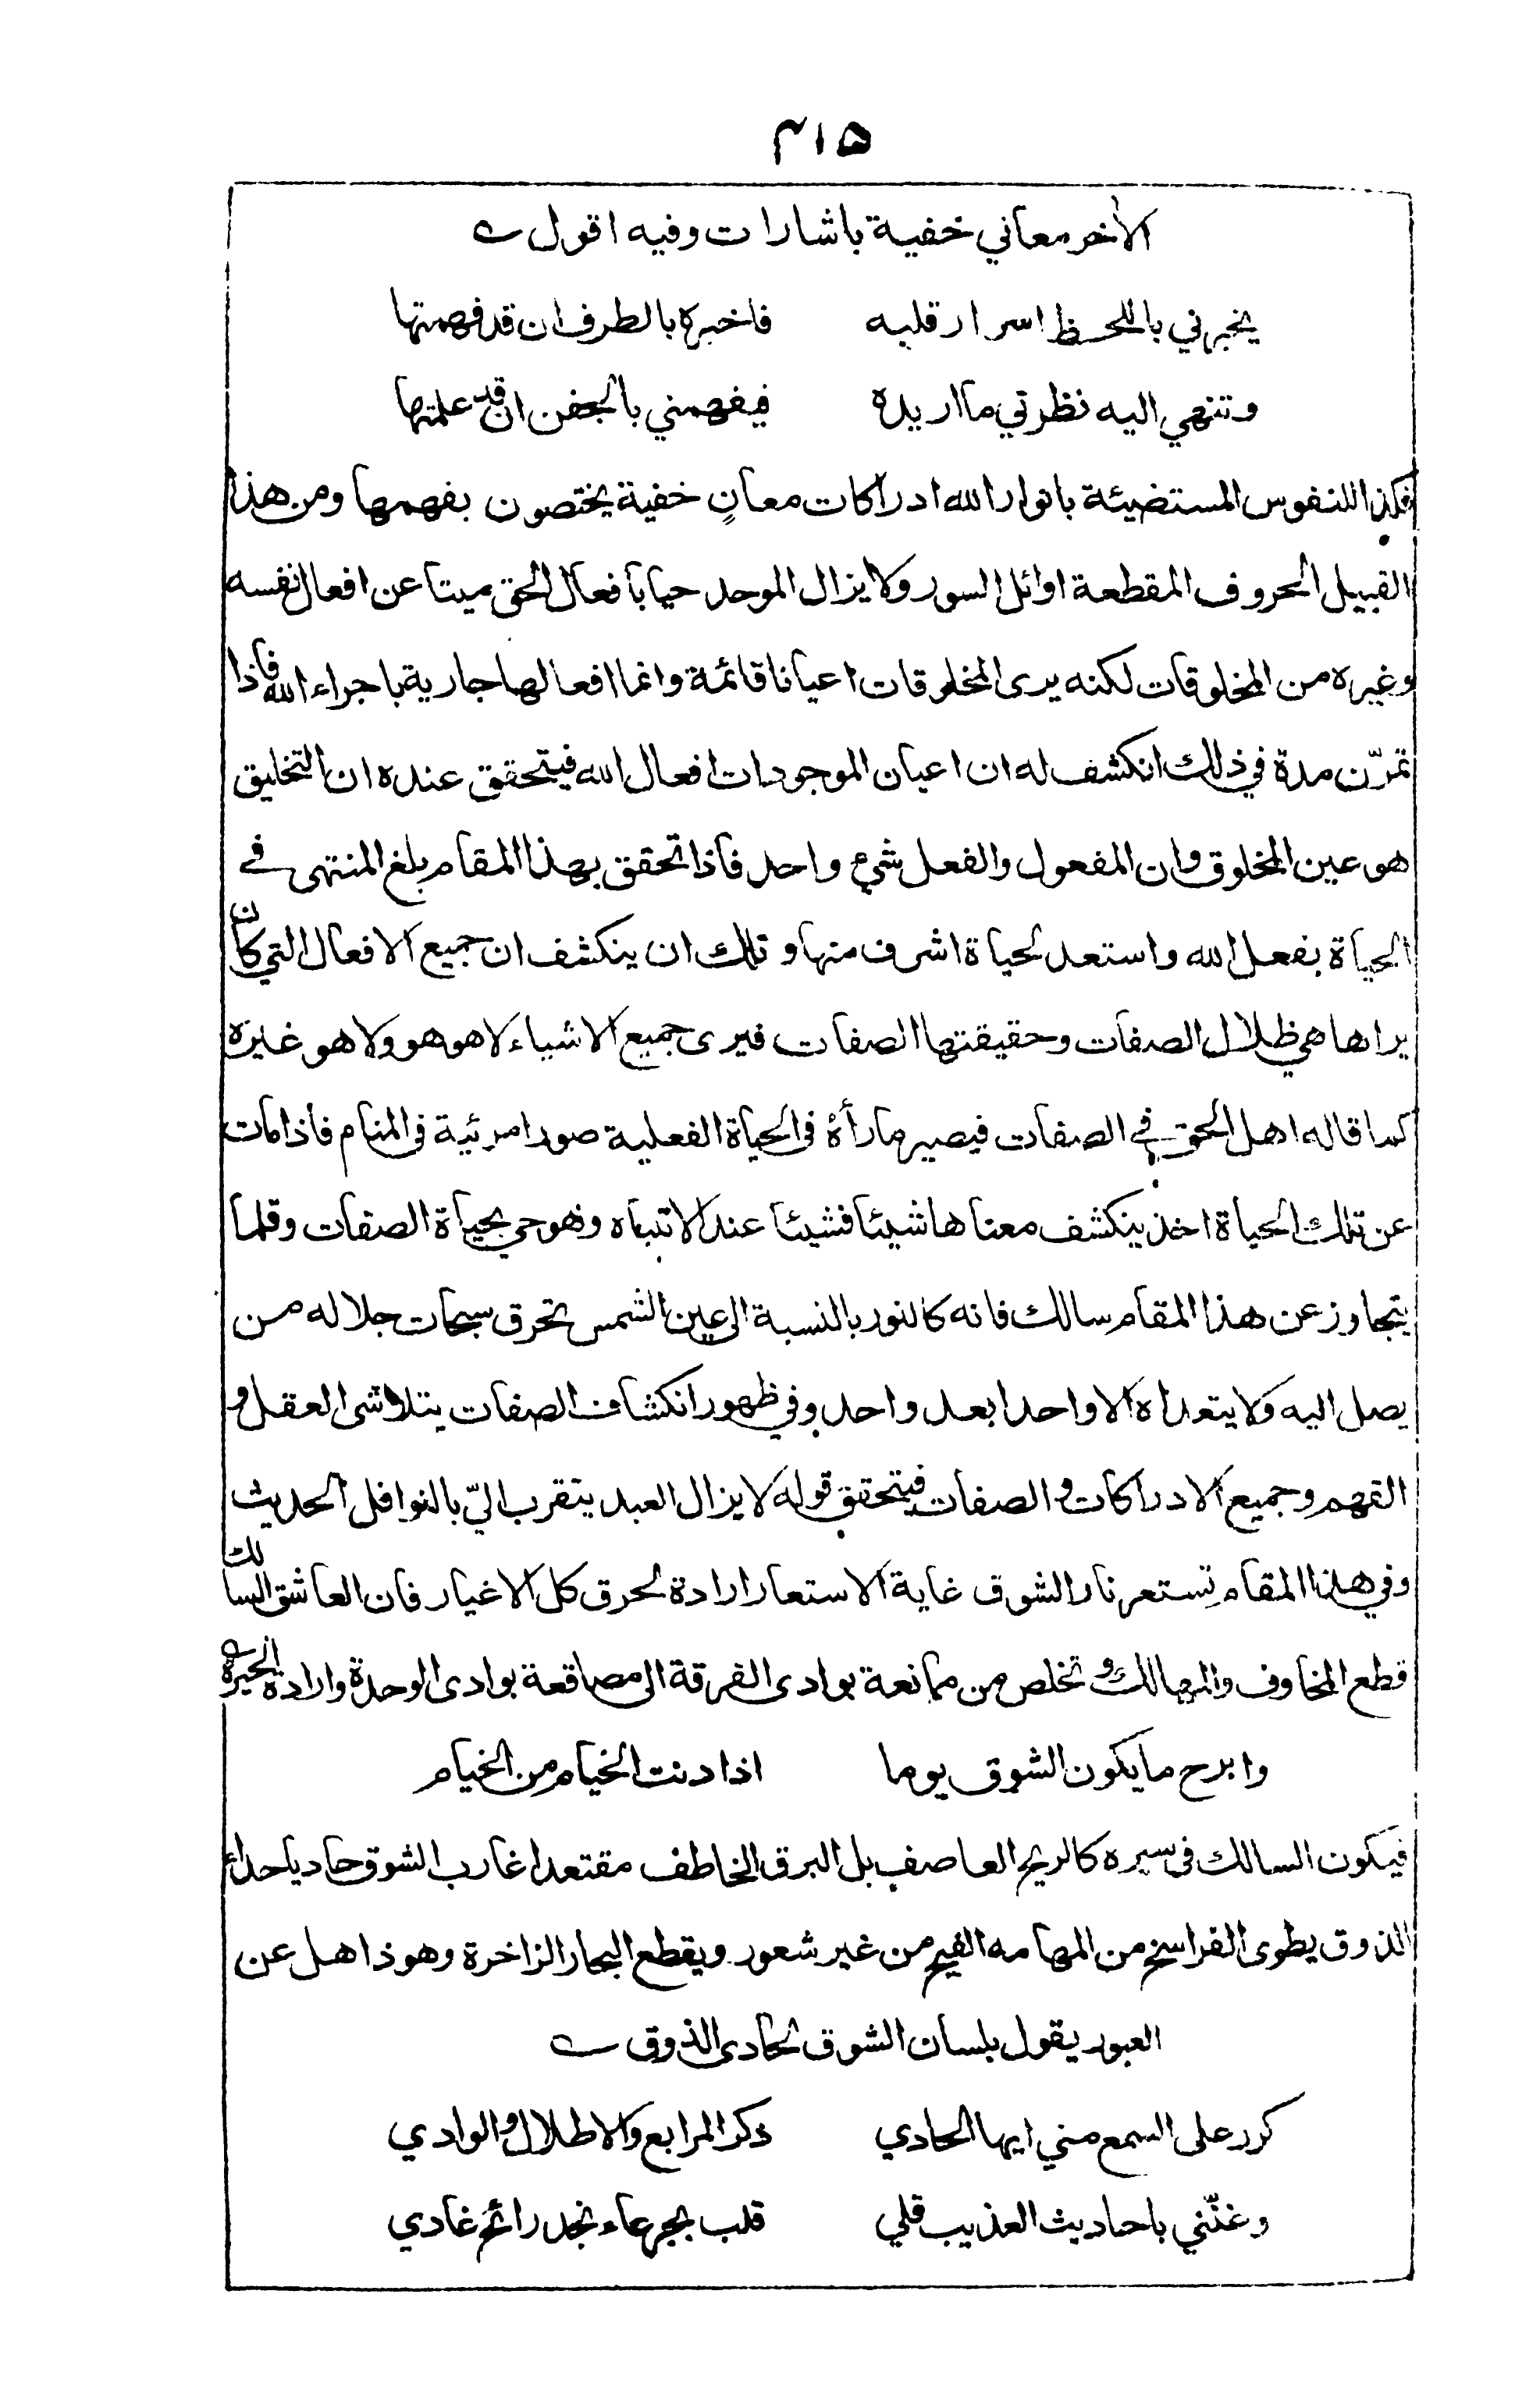 ٣١٥
الاخر معاني خفية باشارات وفيه اقول
يخبرني باللحظ اسرار قلبه فاخبره بالطرف ان قد فهمتها
وتنهي اليه نظرتي ما اريده فيفهمني بالجفن ان قد علمتها
فكذا للنفوس المستضيئة بانوار الله ادراكات معانٍ خفية يختصون بفهمها ومن هذا
القبيل الحروف المقطعة اوائل السور ولا يزال الموحد حيا بافعال الحق ميتا عن افعال نفسه
وغيره من المخلوقات لكنه يرى المخلوقات اعيانا قائمة وانما افعالها جارية باجراء الله فاذا
تمرّن مدة في ذلك انكشف له ان اعيان الموجودات افعال الله فيتحقق عنده ان التخليق
هو عين المخلوق وان المفعول والفعل شيء واحد فاذا تحقق بهذا المقام بلغ المنتهى في
الحياة بفعل الله واستعد لحياة اشرف منها وتلك ان ينكشف ان جميع الافعال التي كان
يراها هي ظلال الصفات وحقيقتها الصفات فيرى جميع الاشياء لا هو هو ولا هو غيره
كما قاله اهل الحق في الصفات فيصير ما رأه في الحياة الفعلية صورا مرئية في المنام فاذا مات
عن تلك الحياة اخذ ينكشف معناها شيئا فشيئا عند الانتباه وهو حي بحياة الصفات وقلما
يتجاوز عن هذا المقام سالك فانه كالنور بالنسبة الى عين الشمس تحرق سبحات جلاله من
يصل اليه ولا يتعداه الا واحدا بعد واحد وفي ظهور انكشاف الصفات يتلاشى العقل و
الفهم وجميع الادراكات والصفات فيتحقق قوله لا يزال العبد يتقرب اليّ بالنوافل الحديث
وفي هذا المقام تستعر نار الشوق غاية الاستعار ارادة لحرق كل الاغيار فان العاشق السالك
قطع المخاوف والمهالك وتخلص من ممانعة بوادى الفرقة الى مصاقعة بوادى الوحدة وارادة الحيرة
وابرح ما يكون الشوق يوما اذا دنت الخيام من الخيام
فيكون السالك في سيره كالريح العاصف بل البرق الخاطف مقتعدا غارب الشوق حاديا حداء
الذوق يطوى الفراسخ من المهامه الفيح من غير شعور ويقطع البحار الزاخرة وهو ذاهل عن
العبور يقول بلسان الشوق لحادى الذوق
كرر على السمع مني ايها الحادي ذكر المرابع والاطلال والوادي
وغنّني باحاديث العذيب فلي قلب بجرعاء نجد رائح غادي